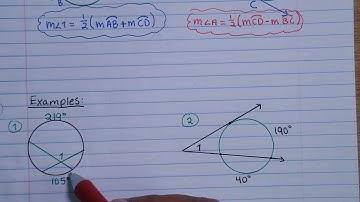 B
C
m∠1 = ½(mAB + mCD)
m∠A = ½(mCD - mBC)
Examples:
1
219°
1
105°
2
190°
1
40°